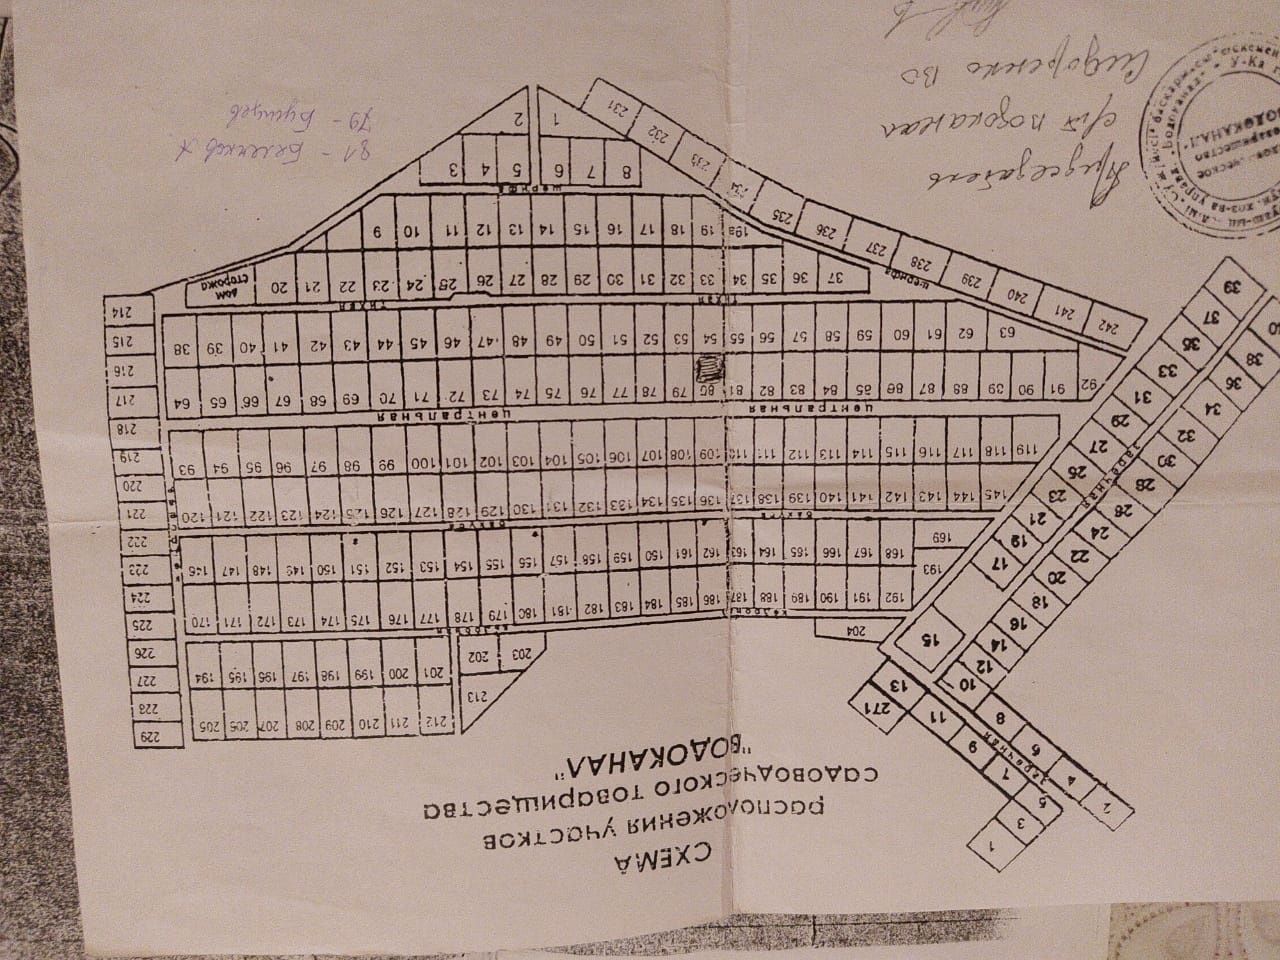 СХЕМА
расположения участков
садоводческого товарищества
"ВОДОКАНАЛ"
Председатель
с/т водоканал
Сидоренко ВО
81 - Беленков А
79 - Бусыгев
2 1
3 4 5 6 7 8
шерифа
9 10 11 12 13 14 15 16 17 18 19 19а
дом сторожа
20 21 22 23 24 25 26 27 28 29 30 31 32 33 34 35 36 37
тихая тихая
38 39 40 41 42 43 44 45 46 47 48 49 50 51 52 53 54 55 56 57 58 59 60 61 62 63
64 65 66 67 68 69 70 71 72 73 74 75 76 77 78 79 80 81 82 83 84 85 86 87 88 89 90 91 92
центральная центральная
93 94 95 96 97 98 99 100 101 102 103 104 105 106 107 108 109 110 111 112 113 114 115 116 117 118 119
120 121 122 123 124 125 126 127 128 129 130 131 132 133 134 135 136 137 138 139 140 141 142 143 144 145
вахуса вахуса
146 147 148 149 150 151 152 153 154 155 156 157 158 159 150 161 162 163 164 165 166 167 168 169
170 171 172 173 174 175 176 177 178 179 180 181 182 183 184 185 186 187 188 189 190 191 192 193
194 195 195 197 198 199 200 201 202 203 204
205 206 207 208 209 210 211 212 213
214
215
216
217
218
219
220
221
222
223
224
225
226
227
228
229
231 232 233 234 235 236 237 238 239 240 241 242
шерифа
39 37 35 33 31 29 27 25 23 21 19 17 15
заречная
40 38 36 34 32 30 28 26 24 22 20 18 16 14 12 10
271 13 11 9 7 5 3 1
заречная
8 6 4 2